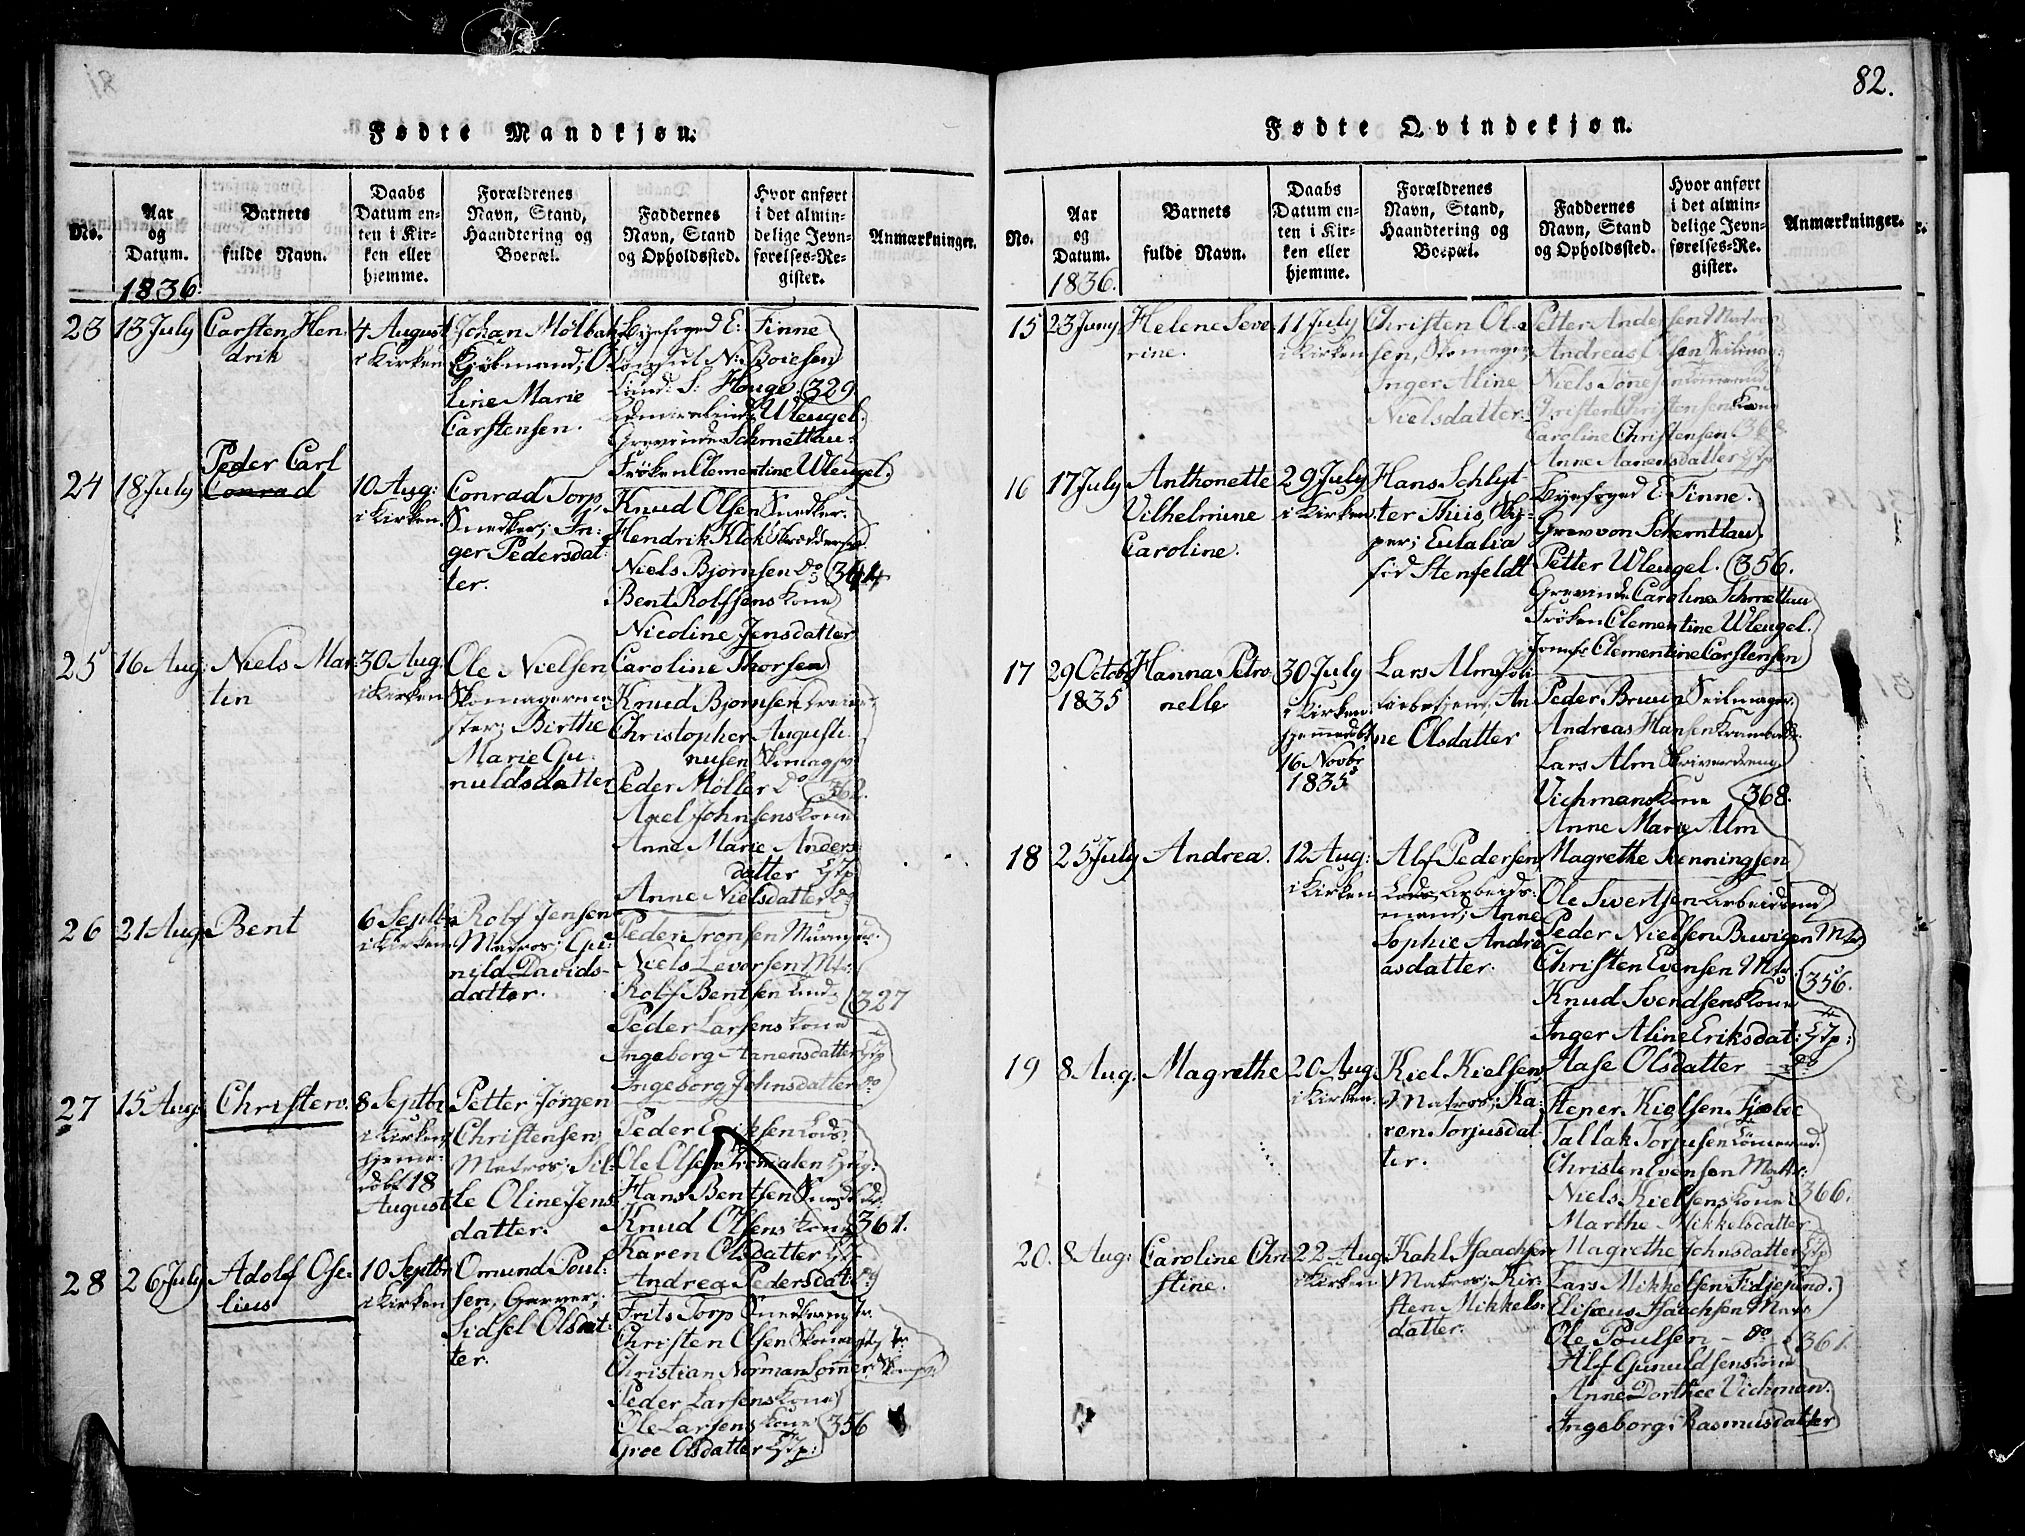 82.
Fødte Mandkjøn.
No.
Aar og Datum.
Barnets fulde Navn.
Daabs Datum enten i Kirken eller hjemme.
Forældrenes Navn, Stand, Haandtering og Boepæl.
Faddernes Navn, Stand og Opholdssted.
Hvor anført i det almindelige Jevnførelses-Register.
Anmærkninger.
1836.
23
13 July
Carsten Hen
drik
4 August
i Kirken
Johan Mølbak
Kjøbmand; O
line Marie
Carstensen.
Byefoged E: Finne
Consul N: Boiesen
S: Houge. 329
Wleugel.
Grevinde Schmettau.
Frøken Clementine Wleugel.
24
18 July
Peder Carl
Conrad
10 Aug:
i Kirken.
Conrad Torp,
Snedker; In
ger Pedersdat
ter.
Knud Olsen Snedker.
Hendrik Klok
Niels Bjørnsen Do 344
Bent Rolfsens Kone
Nicoline Jensdatter
Caroline Thorsen
25
16 Aug:
Niels Mar
tin
30 Aug:
i Kirken
Ole Nielsen
Skomagerme
ster; Birthe
Marie Gu
nuldsdatter
Knud Bjørnsen
Christopher Augusti
nusen Skomager
Peder Møller Do 362.
Axel Johnsens Kone
Anne Marie Anders
datter
Anne Nielsdatter Do
26
21 Aug
Bent
6 Septbr
i Kirken
Rolf Jensen
Matros; Gu
nild Davids-
datter.
Peder Tronsen
Niels Levorsen Mtr:
Rolf Bentsen
327
Peder Larsens Kone
Ingeborg Aanensdatter
Ingeborg Johnsdatter Do
27
15 Aug:
Christen.
8 Septbr
i Kirken
hjeme-
døbt 18
August
Petter Jørgen
Christensen,
Matros; Sil-
le Oline Jens
datter.
Peder Eriksen Lods
Ole Olsen
Hans Bentsen
Knud Olsens Kone 361.
Karen Olsdatter
Andrea Pedersdat: Do
28
26 July
Adolf Ose-
lius
10 Septbr
i Kirken
Omund Poul-
sen, Garver;
Sidsel Olsdat
ter.
Frits Torp Snedkermstr.
Christen Olsen
Christian Norman
Peder Larsens Kone
Ole Larsens Kone 356
Groe Olsdatter
Fødte Qvindekjøn.
No.
Aar og Datum.
Barnets fulde Navn.
Daabs Datum enten i Kirken eller hjemme.
Forældrenes Navn, Stand, Haandtering og Boepæl.
Faddernes Navn, Stand og Opholdssted.
Hvor anført i det almindelige Jevnførelses-Register.
Anmærkninger.
1836.
15
23 Juny
Helene Seve
rine.
11 July
i Kirken
Christen Ol
sen, Skomager
Inger Aline
Nielsdatter.
Petter Andersen Matros
Andreas Olsen Seilmag:
Niels Tønesen
Christen Christensens Kone
Caroline Christensen
Anne Aanensdatter
16
17 July
Anthonette
Vilhelmine
Caroline.
29 July
i Kirken.
Hans Schlyt
ter Thiis, Skip-
per; Eulalia
fød Stenfeldt
Byefoged E: Finne.
Grev von Schmettau,
Petter Wleugel. 356.
Grevinde Caroline Schmettau
Frøken Clementine Wleugel.
Jomfr Clementine Carstensen
17
29 Octobr
1835
Hanna Petro
nelle
30 July
i Kirken
hjemmedøbt
16 Novbr
1835
Lars Alm
An
ne Olsdatter
Peder Bruun Seilmager.
Andreas Hansen
Lars Alm Skriverdreng.
Vichmans Kone 368.
Anne Marie Alm
Magrethe Henningsen
18
25 July
Andrea.
12 Aug:
i Kirken
Alf Pedersen,
Lods Arbeids-
mand; Anne
Sophie Andre
asdatter.
Ole Swertsen Arbeidsmd
Peder Nielsen Buvigen Mtr
Christen Evensen Mtr:
Knud Svendsens Kone 356.
Inger Aline Eriksdat:
Aase Olsdatter Do
19
8 Aug.
Magrethe
20 Aug:
i Kirken.
Kiel Kielsen,
Matros; Ka-
ren Torjusdat
ter.
Stener Kielsen
Tallak Torjusen
Christen Evensen Matr:
Niels Kielsens Kone 366.
Marthe Mikkelsdatter
Magrethe Johnsdatter
20.
8 Aug:
Caroline Chri
stine.
22 Aug
i Kirken
Kahl Isaachsen
Matros; Kir-
sten Mikkels-
datter.
Lars Mikkelsen
Elisæus Isaachsen Matr
Ole Poulsen — Do 361.
Alf Gunuldsens Kone
Anne Dorthee Vichman.
Ingeborg Rasmusdatter